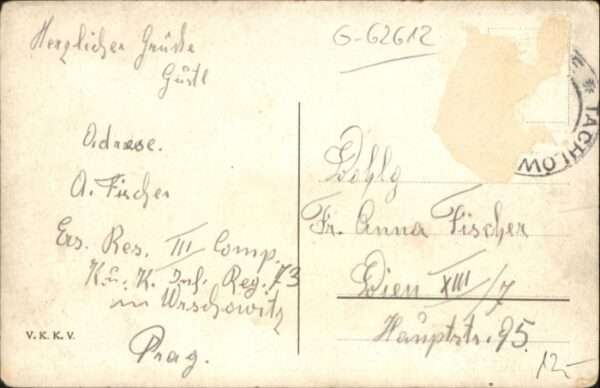 Herzlicher Grüsse
Gustl
Adresse.
A. Fischer
Ers. Res. III Comp.
K. u. K. Inf. Reg. 73
in Wrschowitz
Prag.
V. K. K. V.
G-62612
TACHLOW
Wohlg
Fr. Anna Fischer
Wien XIII/7
Hauptstr. 95.
12-